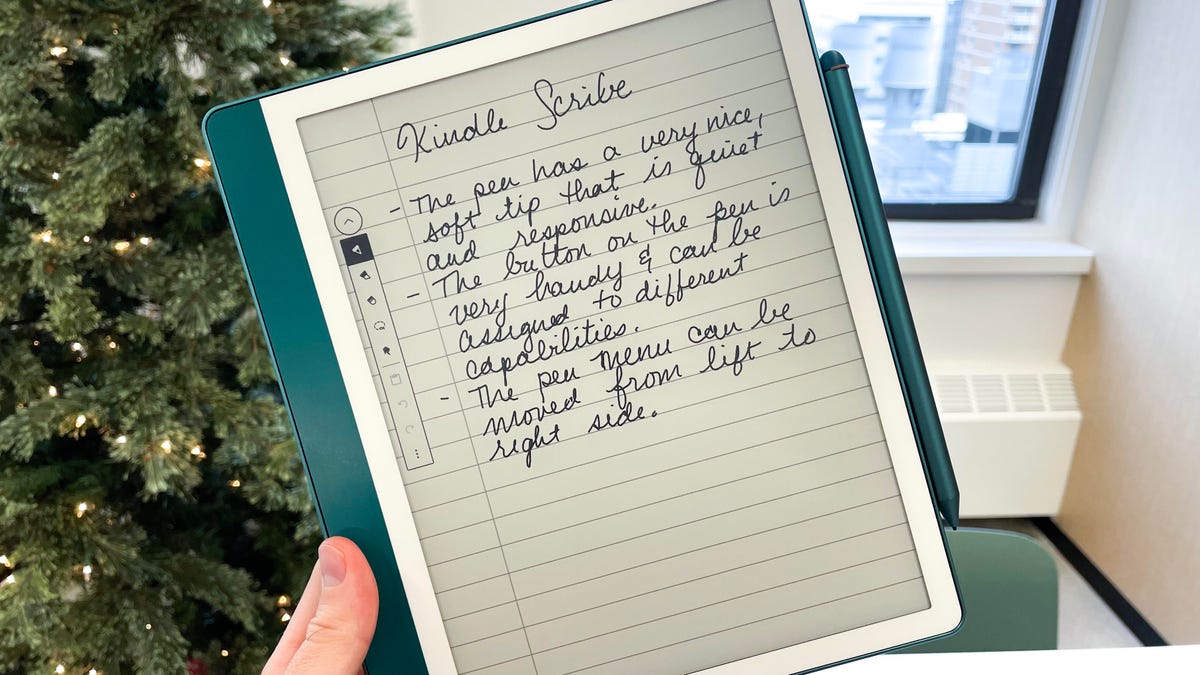 Kindle Scribe
- The pen has a very nice,
soft tip that is quiet
and responsive.
- The button on the pen is
very handy & can be
assigned to different
capabilities.
- The pen menu can be
moved from lift to
right side.